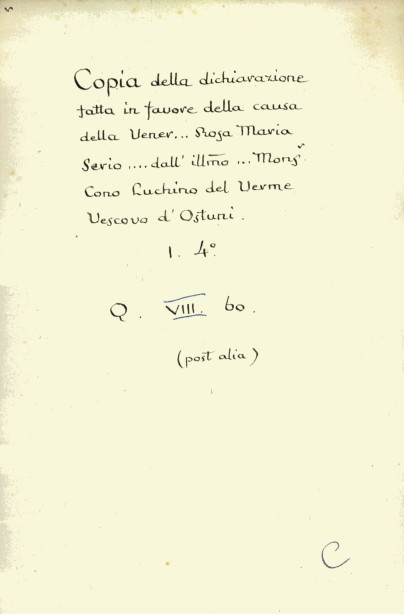 Copia della dichiarazione
fatta in favore della causa
della Vener... Rosa Maria
Serio .... dall' illm̃o ... Monsr
Cono Luchino del Verme
Vescovo d'Ostuni.
1. 4º
Q. VIII. 60.
(post alia)
C